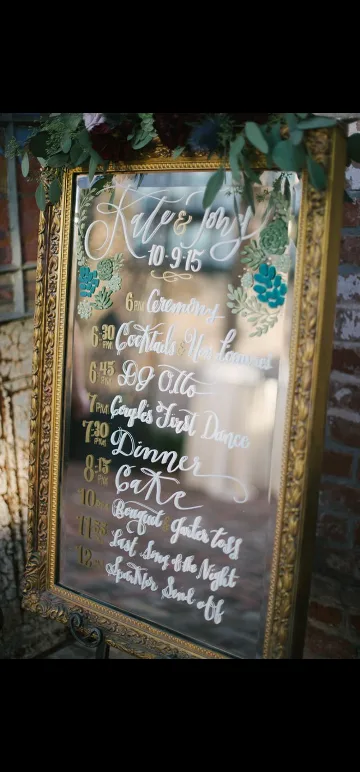 Kate & Jony
10·9·15
6PM Ceremony
6:30PM Cocktails & Hors
6:45PM DJ Otto
7PM Couple's First Dance
7:30PM Dinner
8:15PM Cake
10PM Bouquet & Garter toss
Last Song of the Night
12AM Sparkler Send off